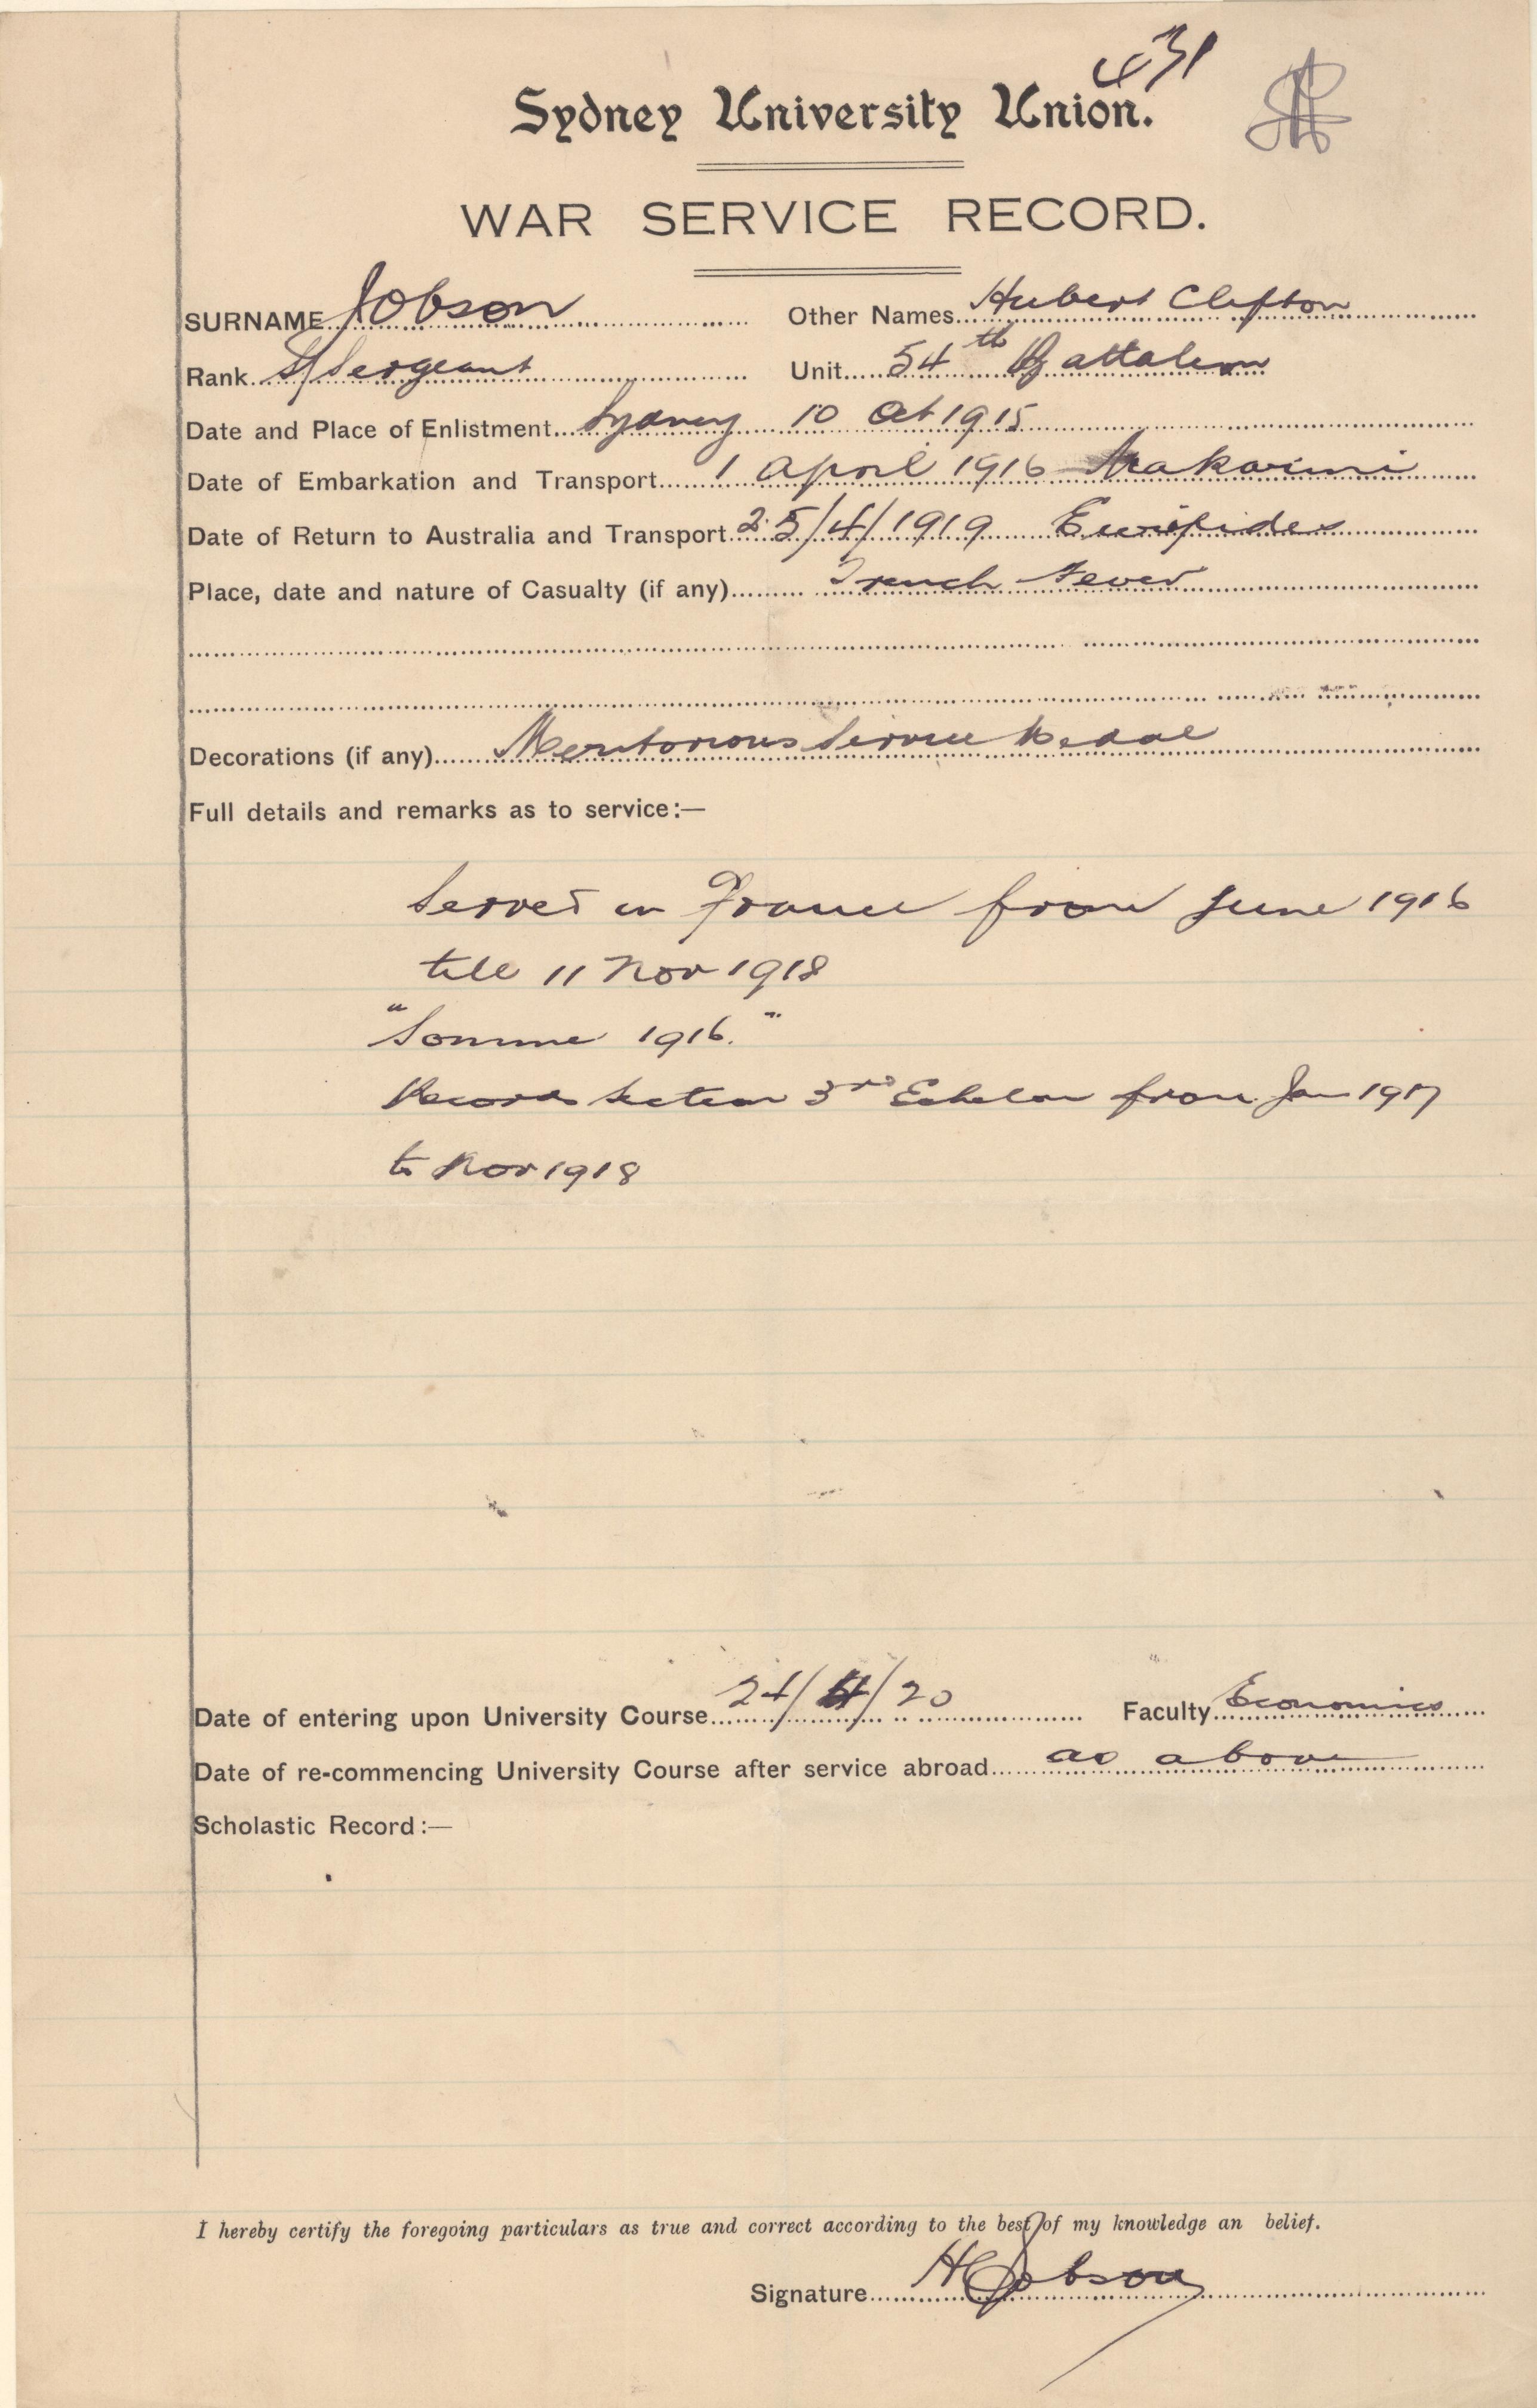 431
Sydney University Union.
WAR SERVICE RECORD.
SURNAME Jobson Other Names Hubert Clifton
Rank S/Sergeant Unit 54th Battalion
Date and Place of Enlistment Sydney 10 Oct 1915
Date of Embarkation and Transport 1 April 1916 Makarini
Date of Return to Australia and Transport 25/4/1919 Euripides
Place, date and nature of Casualty (if any) Trench Fever
Decorations (if any) Meritorious Service Medal
Full details and remarks as to service:—
Served in France from June 1916
till 11 Nov 1918
"Somme 1916."
Records Section 3rd Echelon from Jan 1917
to Nov 1918
Date of entering upon University Course 24/4/20 Faculty Economics
Date of re-commencing University Course after service abroad as above
Scholastic Record:—
I hereby certify the foregoing particulars as true and correct according to the best of my knowledge an belief.
Signature HCJobson